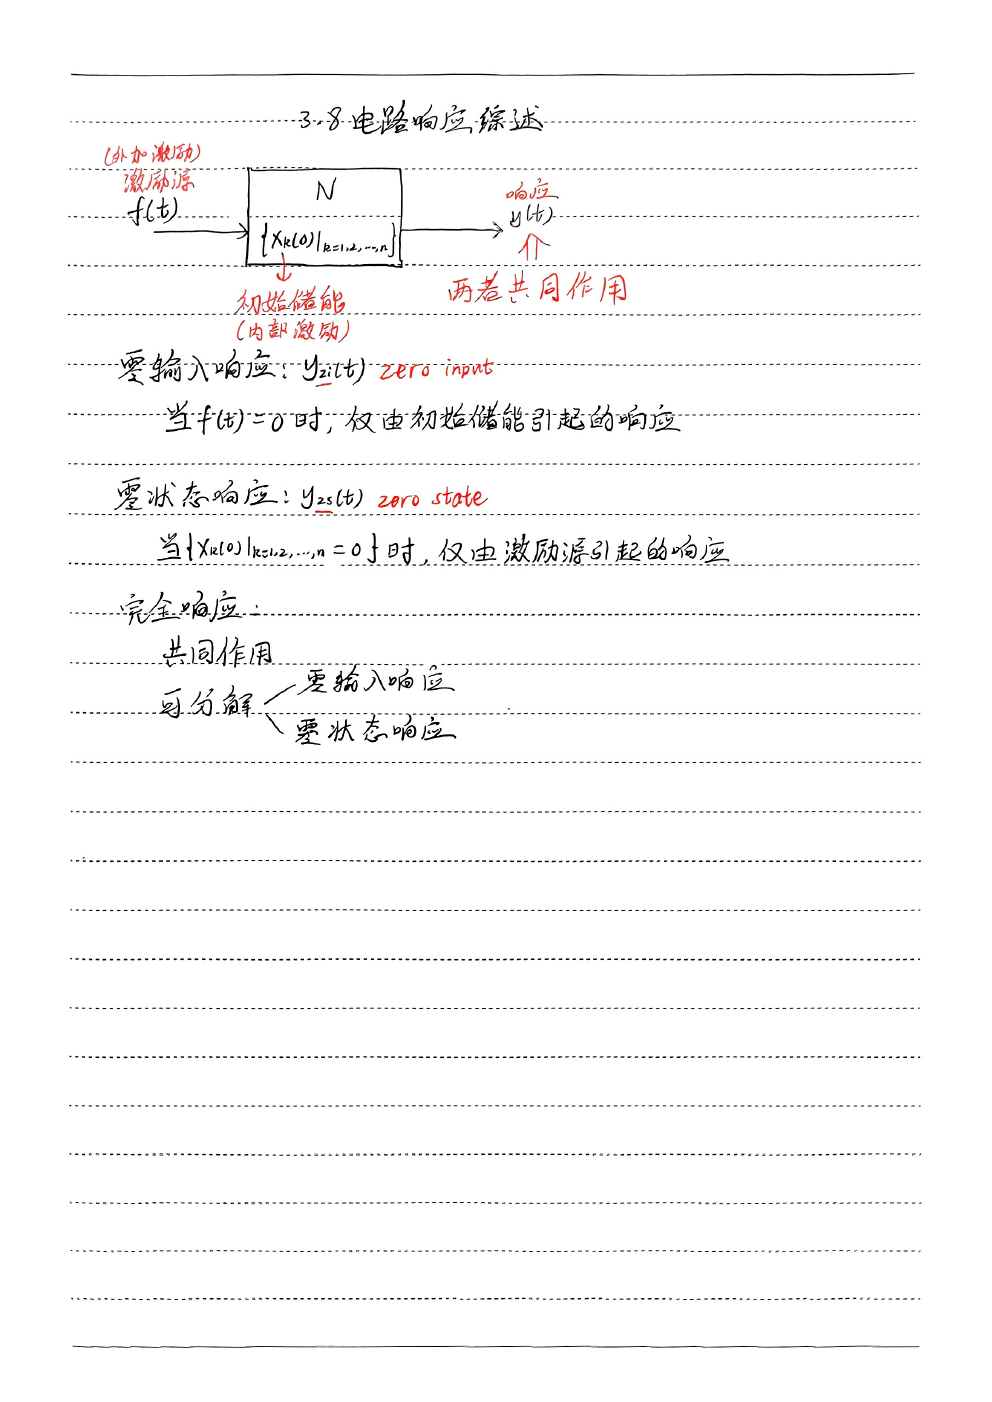 3.8 电路响应综述
(外加激励)
激励源
f(t)
N
{xk(0)|k=1,2,...,n}
响应
y(t)
两者共同作用
初始储能
(内部激励)
零输入响应: yzi(t) zero input
当f(t)=0时,仅由初始储能引起的响应
零状态响应: yzs(t) zero state
当{xk(0)|k=1,2,...,n=0}时,仅由激励源引起的响应
完全响应:
共同作用
可分解
零输入响应
零状态响应